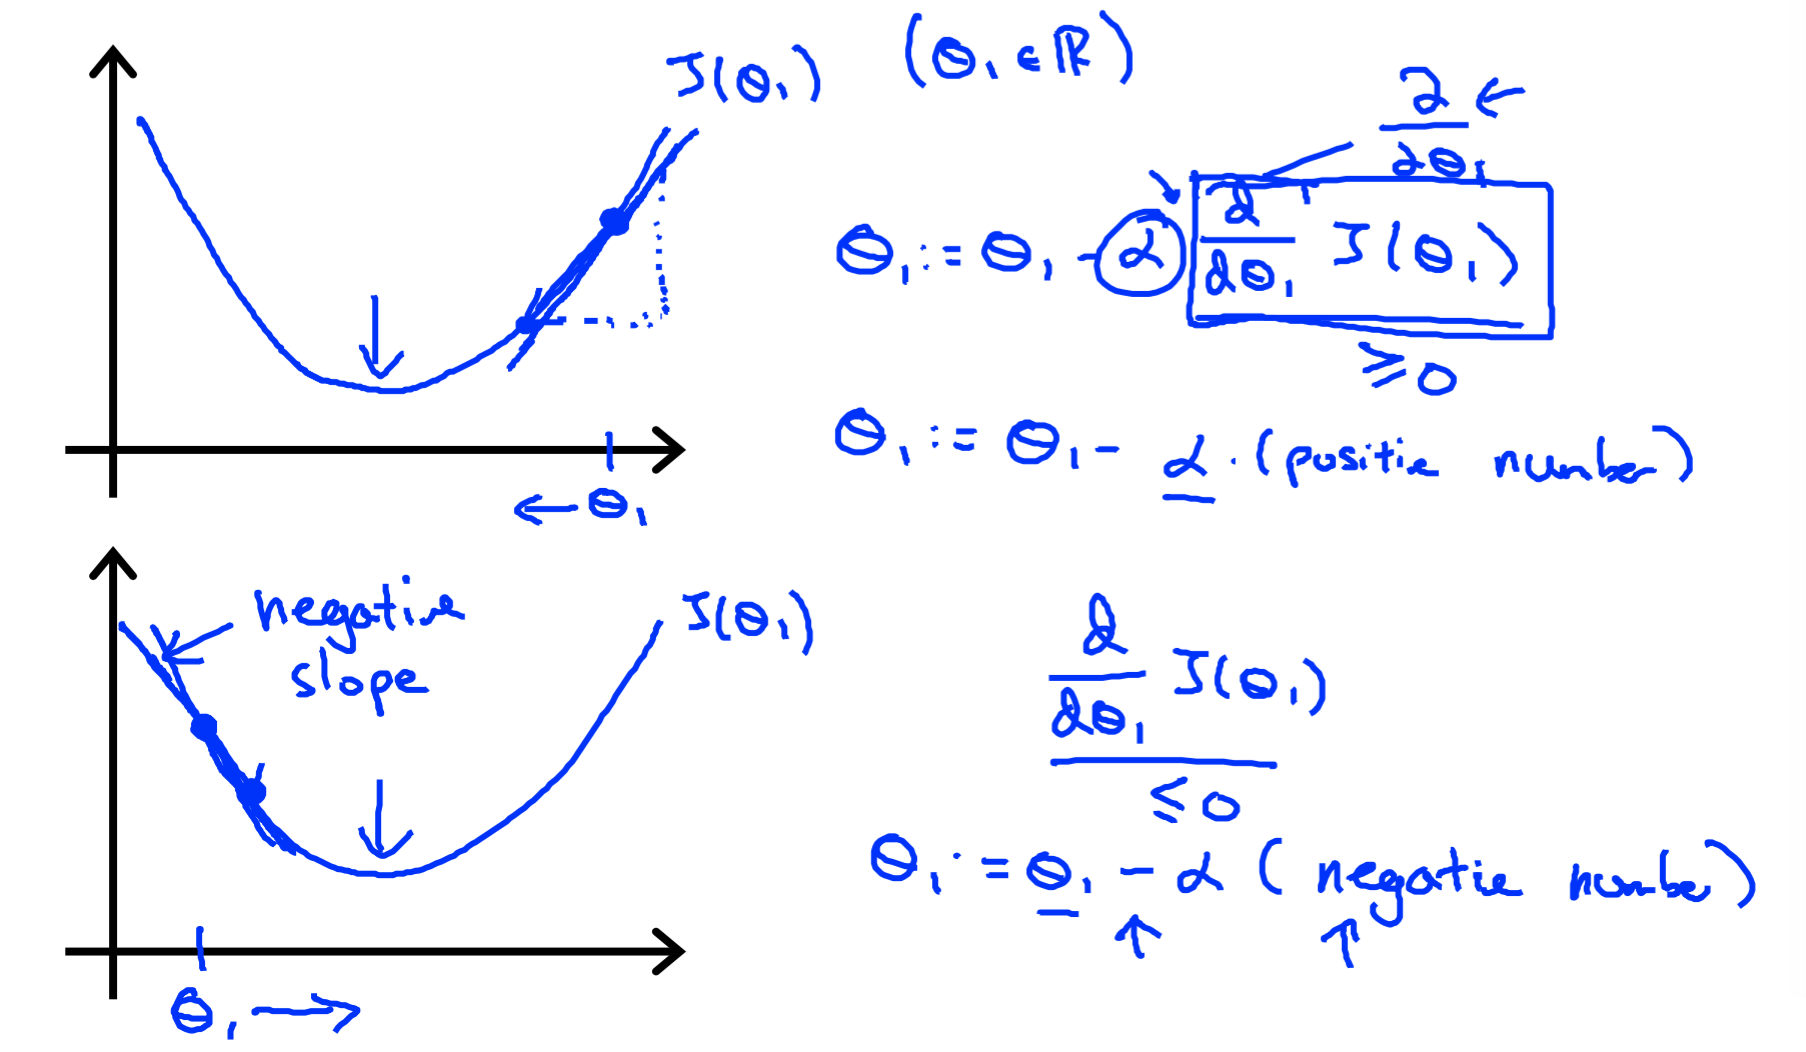 J(θ₁) (θ₁ ∈ ℝ)
∂/∂θ₁ ←
θ₁ := θ₁ - α d/dθ₁ J(θ₁)
≥ 0
θ₁ := θ₁ - α · (positie number)
← θ₁
negatie
slope
J(θ₁)
d/dθ₁ J(θ₁)
≤ 0
θ₁ := θ₁ - α (negatie number)
θ₁ →